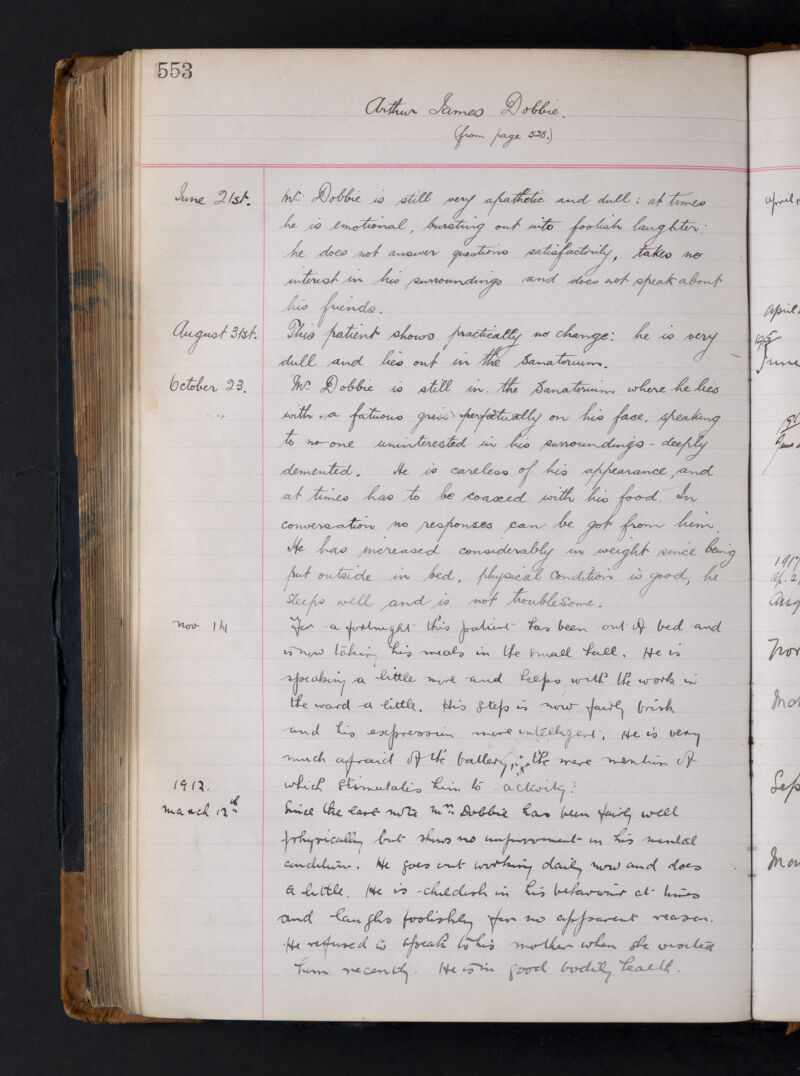 553
Arthur James Dobbie.
(from page 528.)
June 21st. Mr. Dobbie is still very apathetic and dull: at times
he is emotional, bursting out into foolish laughter:
he does not answer questions satisfactorily, takes no
interest in his surroundings and does not speak about
his friends.
August 31st. This patient shows practically no change: he is very
dull and lies out in the Sanatorium.
October 23. Mr. Dobbie is still in the Sanatorium where he lies
with a fatuous grin perpetually on his face, speaking
to no one uninterested in his surroundings - deeply
demented. He is careless of his appearance, and
at times has to be coaxed with his food. In
conversation no responses can be got from him.
He has increased considerably in weight since being
put outside in bed, physical condition is good, he
sleeps well and is not troublesome.
Nov 14 For a fortnight this patient has been out of bed and
is now taking his meals in the small hall. He is
speaking a little more and helps with the work in
the ward a little. His step is now fairly brisk
and his expression more intelligent. He is very
much afraid of the battery, the mere mention of
1912. which stimulates him to activity.
March 12th Since the last note Mr. Dobbie has been fairly well
physically but shows no improvement in his mental
condition. He goes out working daily now and does
a little. He is childish in his behaviour at times
and laughs foolishly for no apparent reason.
He refused to speak to his mother when she visited
him recently. He is in good bodily health.
April
April
June
1917
Aug
Nov
Sep